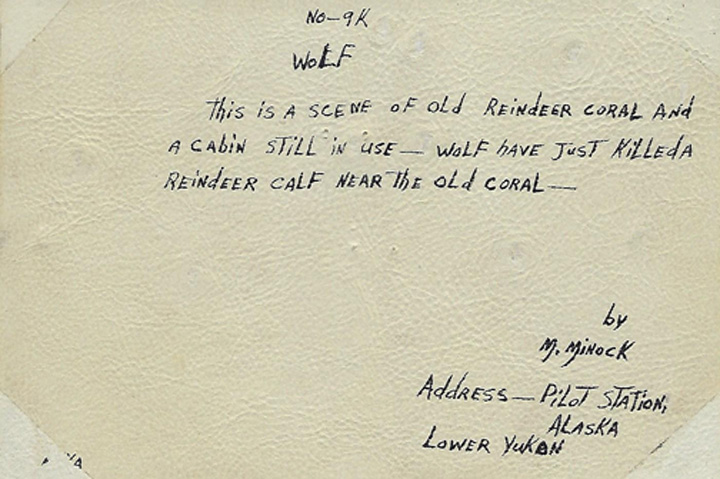 No-9K
WOLF
This is A SCENE OF Old REiNdEER CORAL ANd
A CAbiN STiLL iN USE — WOLF hAVE JUST KiLLEd A
REiNdEER CALF NEAR The OLd CORAL —
by
M. MiNOCK
AddRESS — PiLOT STATiON,
ALASKA
LOWER YUKON